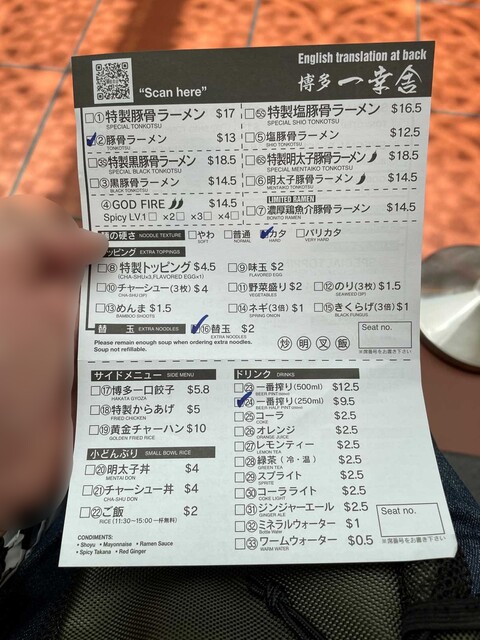 English translation at back
"Scan here"
博多 一幸舎
① 特製豚骨ラーメン $17
SPECIAL TONKOTSU
② 豚骨ラーメン $13
TONKOTSU
③S 特製黒豚骨ラーメン $18.5
SPECIAL BLACK TONKOTSU
③ 黒豚骨ラーメン $14.5
BLACK TONKOTSU
④ GOD FIRE $14.5
Spicy LV.1□ ×2□ ×3□ ×4□
⑤S 特製塩豚骨ラーメン $16.5
SPECIAL SHIO TONKOTSU
⑤ 塩豚骨ラーメン $12.5
SHIO TONKOTSU
⑥S 特製明太子豚骨ラーメン $18.5
SPECIAL MENTAIKO TONKOTSU
⑥ 明太子豚骨ラーメン $14.5
MENTAIKO TONKOTSU
LIMITED RAMEN
⑦ 濃厚鶏魚介豚骨ラーメン $14.5
BONITO RAMEN
麺の硬さ NOODLE TEXTURE
やわ 普通 カタ バリカタ
SOFT NORMAL HARD VERY HARD
トッピング EXTRA TOPPINGS
⑧ 特製トッピング $4.5
(CHA-SHU×3,FLAVORED EGG×1)
⑨ 味玉 $2
FLAVORED EGG
⑩ チャーシュー(3枚) $4
CHA-SHU
⑪ 野菜盛り $2
VEGETABLES
⑫ のり(3枚) $1.5
SEAWEED (3P)
⑬ めんま $1.5
BAMBOO SHOOTS
⑭ ネギ(3倍) $1
SPRING ONION
⑮ きくらげ(3倍) $1
BLACK FUNGUS
替玉 EXTRA NOODLES
⑯ 替玉 $2
EXTRA NOODLES
Please remain enough soup when ordering extra noodles.
Soup not refillable.
炒 明 叉 飯
Seat no.
※席番号をお書き下さい
サイドメニュー SIDE MENU
⑰ 博多一口餃子 $5.8
HAKATA GYOZA
⑱ 特製からあげ $5
FRIED CHICKEN
⑲ 黄金チャーハン $10
GOLDEN FRIED RICE
小どんぶり SMALL BOWL RICE
⑳ 明太子丼 $4
MENTAI DON
㉑ チャーシュー丼 $4
CHA-SHU DON
㉒ ご飯 $2
RICE (11:30~15:00 一杯無料)
CONDIMENTS:
• Shoyu • Mayonnaise • Ramen Sauce
• Spicy Takana • Red Ginger
ドリンク DRINKS
㉓ 一番搾り(500ml) $12.5
㉔ 一番搾り(250ml) $9.5
BEER HALF PINT
㉕ コーラ $2.5
COKE
㉖ オレンジ $2.5
ORANGE JUICE
㉗ レモンティー $2.5
LEMON TEA
㉘ 緑茶(冷・温) $2.5
GREEN TEA
㉙ スプライト $2.5
SPRITE
㉚ コーラライト $2.5
COKE LIGHT
㉛ ジンジャーエール $2.5
GINGER ALE
㉜ ミネラルウォーター $1
㉝ ワームウォーター $0.5
WARM WATER
Seat no.
※席番号をお書き下さい